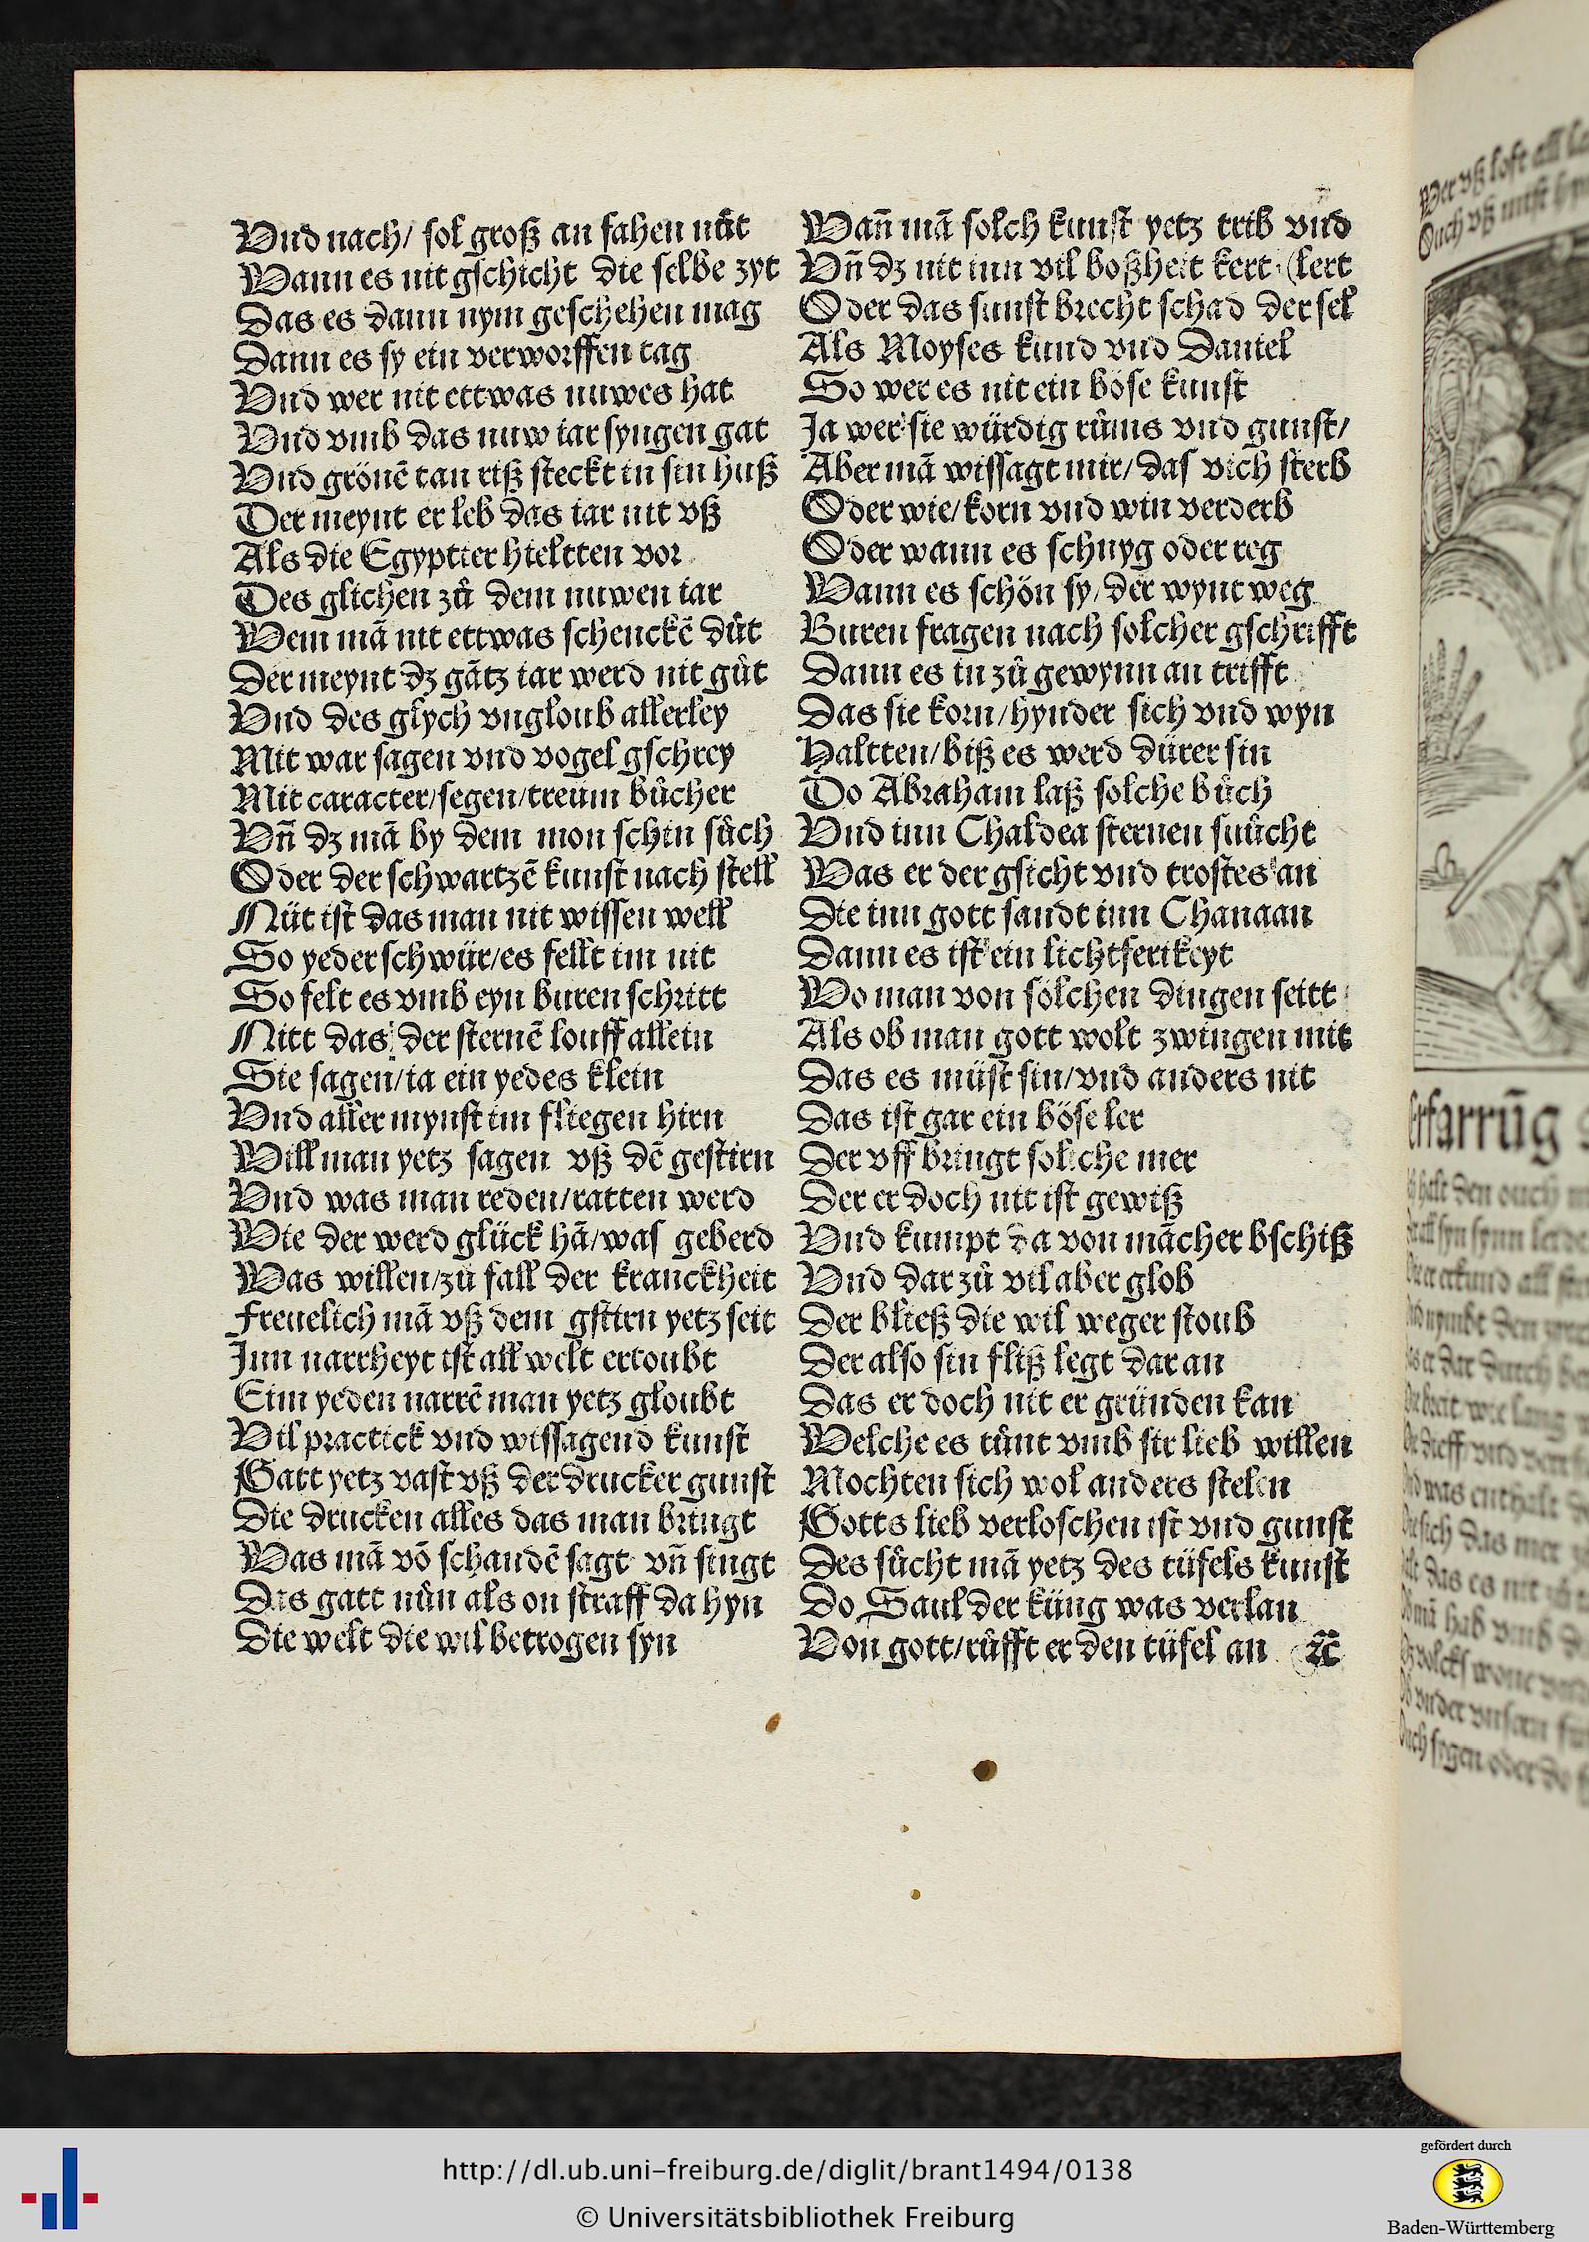 Vnd nach/ sol groß an fahen nüt
Wann es nit gschicht die selbe zyt
Das es dann nym geschehen mag
Dann es sy ein verworffen tag
Vnd wer nit ettwas nuwes hat
Vnd vmb das nuw iar syngen gat
Vnd grönē tan riß steckt in sin huß
Der meynt er leb das iar nit vß
Als die Egyptier hieltten vor
Des glichen zů dem nuwen iar
Wem mā nit ettwas schenckē důt
Der meynt dz gātz iar werd nit gůt
Vnd des glych vngloub allerley
Mit war sagen vnd vogel gschrey
Mit caracter/segen/treüm bůcher
Vn̄ dz mā by dem mon schin sůch
Oder der schwartzē kunst nach stell
Nüt ist das man nit wissen well
So yeder schwür/es fellt im nit
So felt es vmb eyn buren schritt
Nitt das der sternē louff allein
Sie sagen/ia ein yedes klein
Vnd aller mynst im fliegen hirn
Will man yetz sagen vß dē gestirn
Vnd was man reden/ratten werd
Wie der werd glück hā/was geberd
Was willen/zů fall der kranckheit
Freuelich mā vß dem gstirn yetz seit
Inn narrheyt ist all welt ertoubt
Eim yeden narrē man yetz gloubt
Vil practick vnd wissagend kunst
Gatt yetz vast vß der drucker gunst
Die drucken alles das man bringt
Was mā vō schandē sagt vn̄ singt
Das gatt nůn als on straff da hyn
Die welt die wil betrogen syn
Wan̄ mā solch kunst yetz trib vnd
Vn̄ dz nit inn vil boßheit kert (lert
Oder das sunst brecht schad der sel
Als Moyses kund vnd Daniel
So wer es nit ein böse kunst
Ja wer sie würdig růms vnd gunst/
Aber mā wissagt mir/das vich sterb
Oder wie/korn vnd win verderb
Oder wann es schnyg oder reg
Wann es schön sy/der wynt weg
Buren fragen nach solcher gschrifft
Dann es in zů gewynn an trifft
Das sie korn/hynder sich vnd wyn
Haltten/biß es werd dürer sin
Do Abraham laß solche bůch
Vnd inn Chaldea sternen sůcht
Was er der gsicht vnd trostes an
Die inn gott sandt inn Chanaan
Dann es ist ein lichtferikeyt
Wo man von sölchen dingen seitt
Als ob man gott wolt zwingen mit
Das es müst sin/vnd anders nit
Das ist gar ein böse ler
Der vff bringt soliche mer
Der er doch nit ist gewiß
Vnd kumpt da von mācher bschiß
Vnd dar zů vil aber glob
Der bließ die wil weger stoub
Der also sin fliß legt dar an
Das er doch nit er gründen kan
Welche es tůnt vmb sir lieb willen
Mochten sich wol anders stelen
Gotts lieb verloschen ist vnd gunst
Des sůcht mā yetz des tüfels kunst
Do Saul der küng was verlan
Von gott/růfft er den tüfel an ⁊c
Erfarrūg
http://dl.ub.uni-freiburg.de/diglit/brant1494/0138
© Universitätsbibliothek Freiburg
gefördert durch
Baden-Württemberg